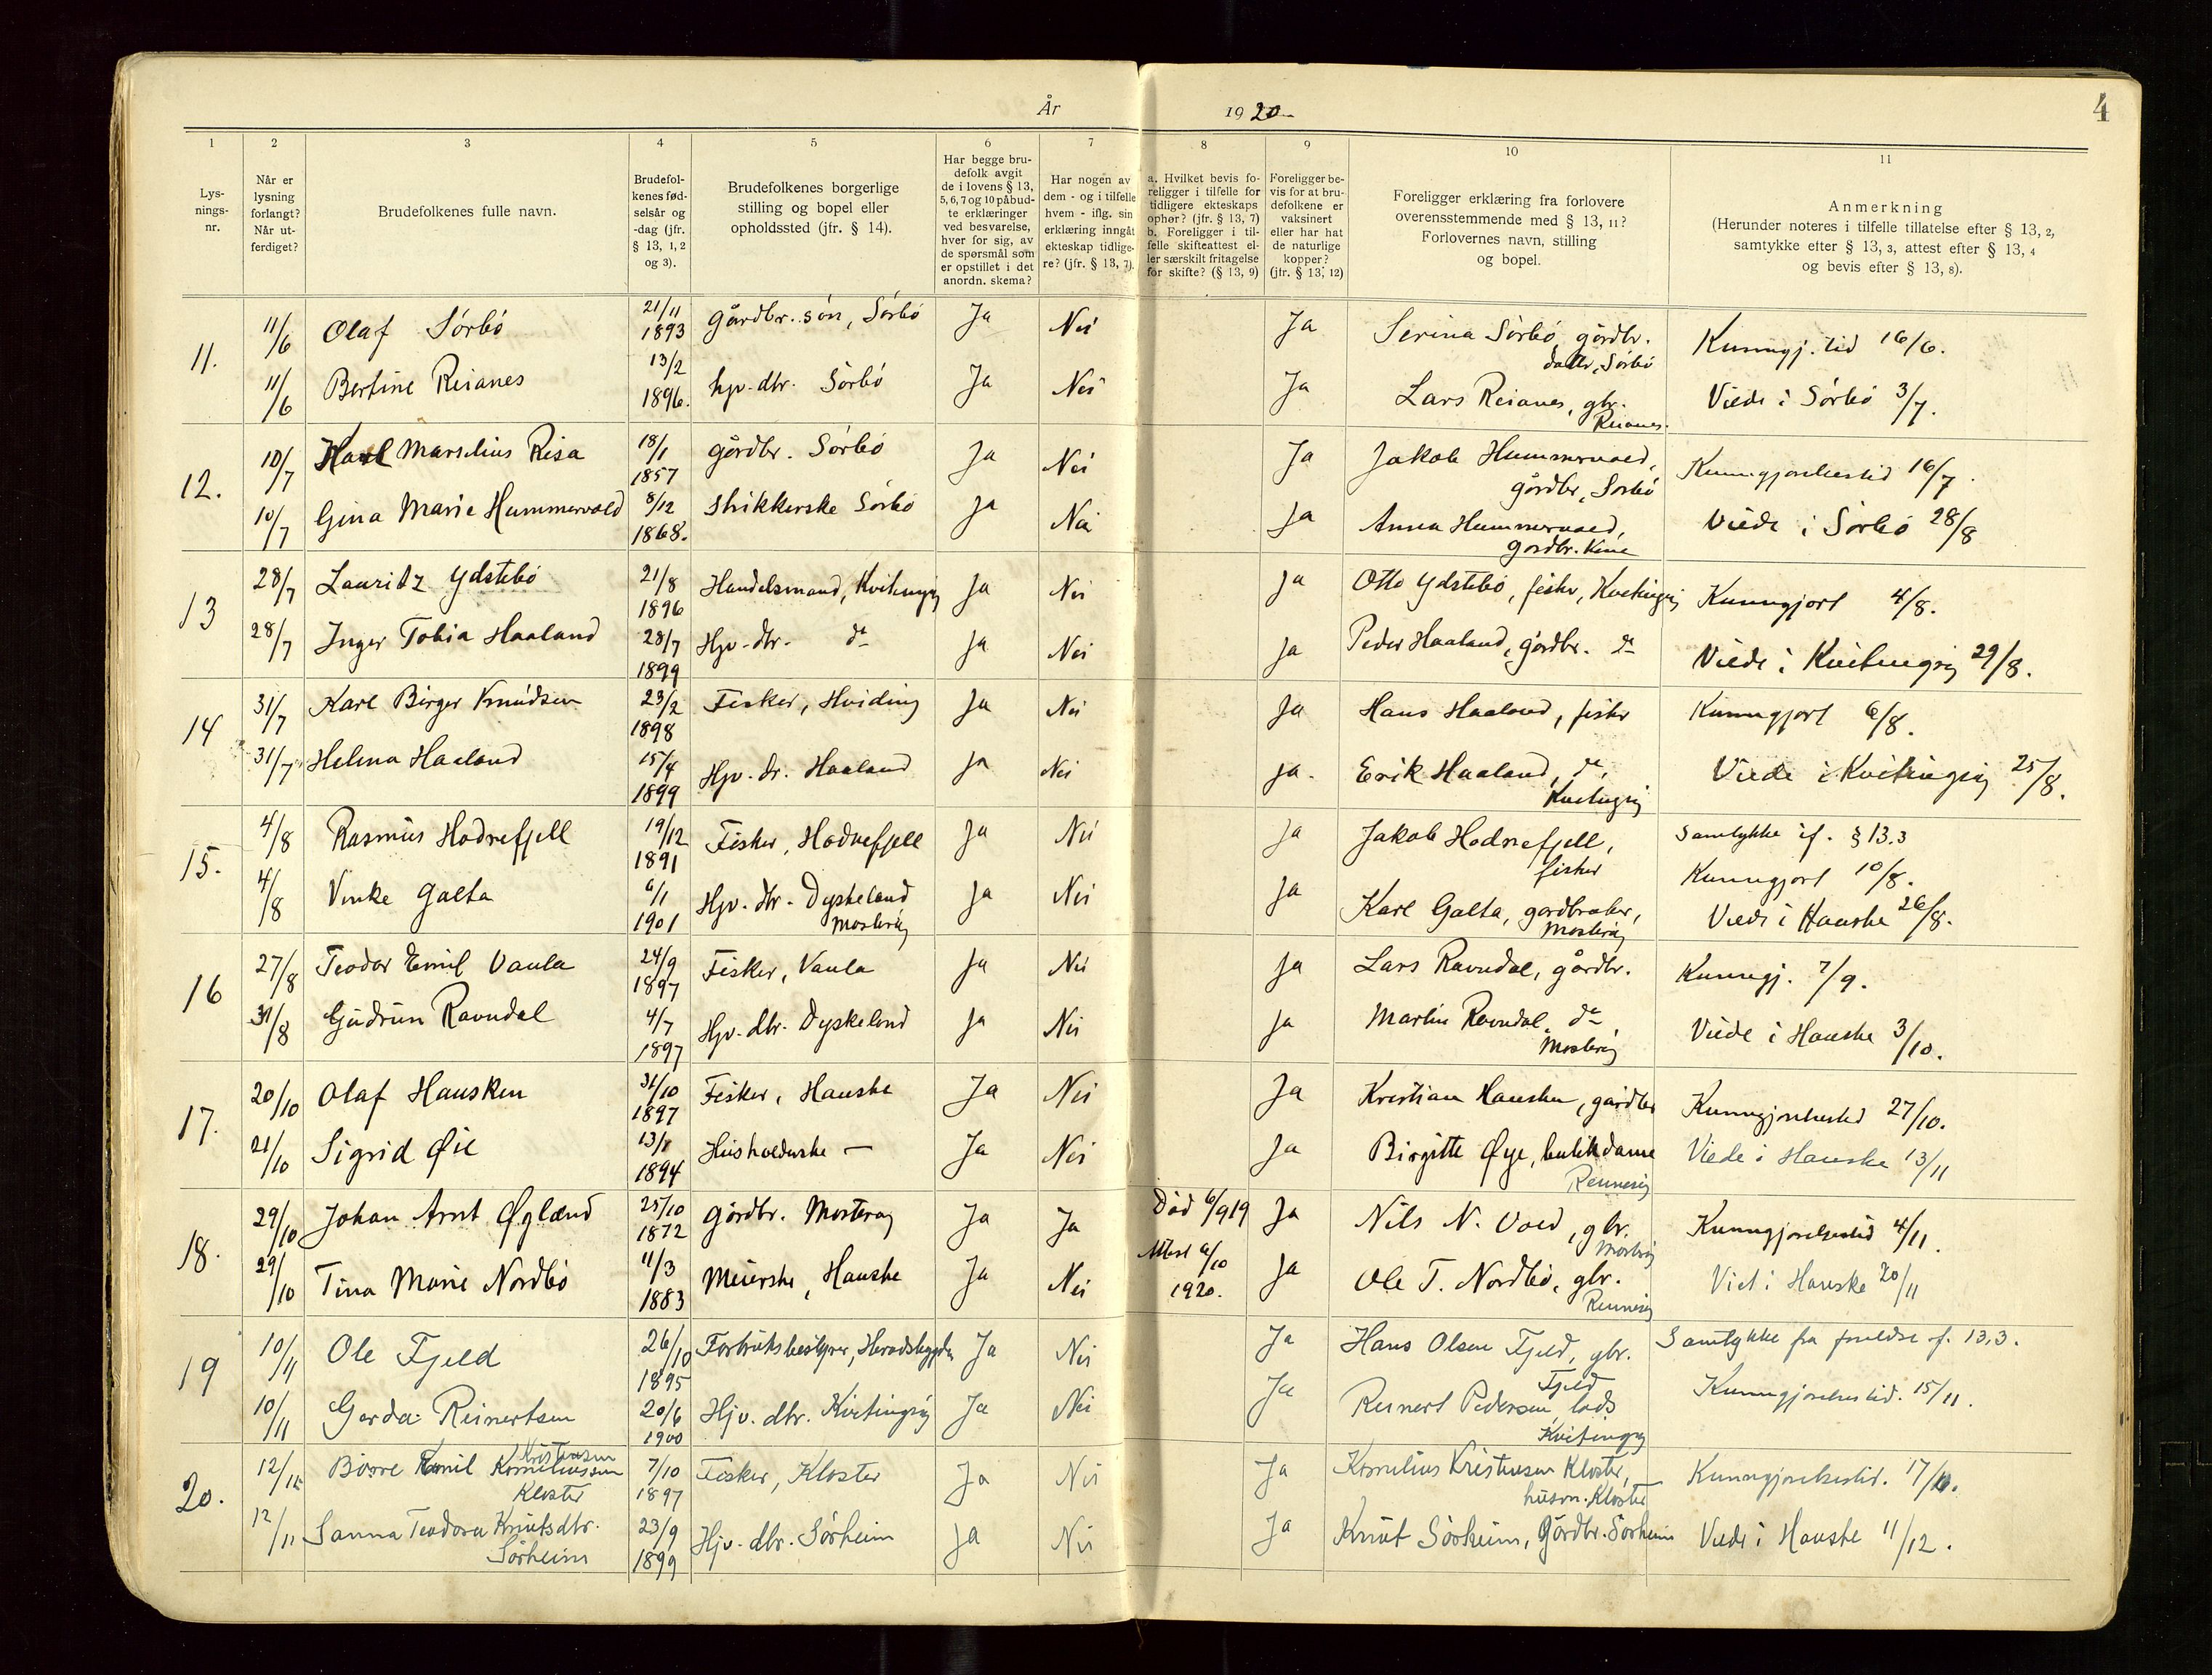 År 1920
4
1
2
3
4
5
6
7
8
9
10
11
Lys-
nings-
nr.
Når er
lysning
forlangt?
Når ut-
ferdiget?
Brudefolkenes fulle navn.
Brudefol-
kenes fød-
selsår og
-dag (jfr.
§ 13, 1, 2
og 3).
Brudefolkenes borgerlige
stilling og bopel eller
opholdssted (jfr. § 14).
Har begge bru-
defolk avgit
de i lovens § 13,
5, 6, 7 og 10 påbud-
te erklæringer
ved besvarelse,
hver for sig, av
de spørsmål som
er opstillet i det
anordn. skema?
Har nogen av
dem - og i tilfelle
hvem - iflg. sin
erklæring inngåt
ekteskap tidlige-
re? (jfr. § 13, 7).
a. Hvilket bevis fo-
religger i tilfelle for
tidligere ekteskaps
ophør? (jfr. § 13, 7)
b. Foreligger i til-
felle skifteattest el-
ler særskilt fritagelse
for skifte? (§ 13, 9)
Foreligger be-
vis for at bru-
defolkene er
vaksinert
eller har hat
de naturlige
kopper?
(jfr. § 13, 12)
Foreligger erklæring fra forlovere
overensstemmende med § 13, 11?
Forlovernes navn, stilling
og bopel.
Anmerkning
(Herunder noteres i tilfelle tillatelse efter § 13, 2,
samtykke efter § 13, 3, attest efter § 13, 4
og bevis efter § 13, 8).
11.
11/6 Olaf Sörbö 21/11 1893 gårdbr. sön, Sörbö Ja Nei Ja Serina Sörbö, gårdbr. datter, Sörbö Kunngj. tid 16/6.
11/6 Bertine Reianes 13/2 1896. hjv. dtr. Sörbö Ja Nei Ja Lars Reianes, gbr. Reianes. Viede i Sörbö 3/7.
12.
10/7 Karl Marselius Risa 18/1 1857 gårdbr. Sörbö Ja Nei Ja Jakob Hummervold, gårdbr, Sörbö Kunngjörelsestid 16/7.
10/7 Gina Marie Hummervold 8/12 1868. Strikkerske Sörbö Ja Nei Ja Anna Hummervold, gårdbr. Viede i Sörbö 28/8
13
28/7 Lauritz Ydstebö 21/8 1896 Handelsmand, Kvitingsøy Ja Nei Ja Otto Ydstebö, fisker, Kvitingsøy Kunngjort 4/8.
28/7 Inger Tobia Haaland 28/7 1899 Hjv. dtr. do Ja Nei Ja Peder Haaland, gårdbr. do Viede i Kvitingsøy 29/8.
14
31/7 Karl Birger Knudsen 23/2 1898 Fisker, Hviding Ja Nei Ja Hans Haaland, fisker Kunngjort 6/8.
31/7 Helena Haaland 15/4 1899 Hjv. dr. Haaland Ja Nei Ja. Erik Haaland, do, Kvitingsøy Viede i Kvitingsøy 25/8.
15.
4/8 Rasmus Hodnefjell 19/12 1891 Fisker, Hodnefjell Ja Nei Ja Jakob Hodnefjell, fisker Samtykke if. § 13.3
Kunngjort 10/8.
4/8 Vinke Galta 6/1 1901 Hjv. dtr. Dyskeland Mosterøy Ja Nei Ja Karl Galta, gardbruker, Mosterøy Viede i Hauske 26/8.
16
27/8 Teodor Emil Vaula 24/9 1897 Fisker, Vaula Ja Nei Ja Lars Ravndal, gårdbr. Kunngj. 7/9.
31/8 Gudrun Ravndal 4/7 1897 Hjv. dtr. Dyskeland Ja Nei Ja Martin Ravndal, do, Mosterøy Viede i Hauske 3/10.
17.
20/10 Olaf Hausken 31/10 1897 Fisker, Hauske Ja Nei Ja Kristian Hausken, gårdbr Kunngjörelsestid 27/10.
21/10 Sigrid Øie 1894 Husholderske — Ja Nei Ja Birgitte Øye, butikdame Rennesøy Viede i Hauske 13/11
18.
29/10 Johan Arnt Øgland 25/10 1872 gårdbr. Mosterøy Ja Ja Död 6/9 19 Ja Nils N. Vold, gbr. Mosterøy Kunngjörelsestid 4/11.
29/10 Tina Marie Nordbö 11/3 1883 Meierske, Hauske Ja Nei Attest 6/10 1920. Ja Ole T. Nordbö, gbr. Rennesøy Viet i Hauske 20/11
19
10/11 Ole Fjeld 26/10 1895 Forbruksbestyrer, Heradsbygden Ja Nei Ja Hans Olsen Fjeld, gbr. Fjeld Samtykke fra foreldre if. 13,3.
10/11 Gerda Reinertsen 20/6 1900 Hjv. dtr. Kvitingsøy Ja Nei Ja Reinert Pedersen, lods Kvitingsøy Kunngjörelsestid. 15/11.
20.
12/11 Börre Emil Korneliussen Kristiansen Kloster 7/10 1897 Fisker, Kloster Ja Nei Ja Kornelius Kristiansen Kloster, husm. Kloster Kunngjörelsestid. 17/11.
12/11 Sanna Teodora Knutsdtr. Sörheim 23/9 1899 Hjv. dtr. Sörheim Ja Nei Ja Knut Sörheim, Gårdbr. Sörheim Viede i Hauske 11/12.